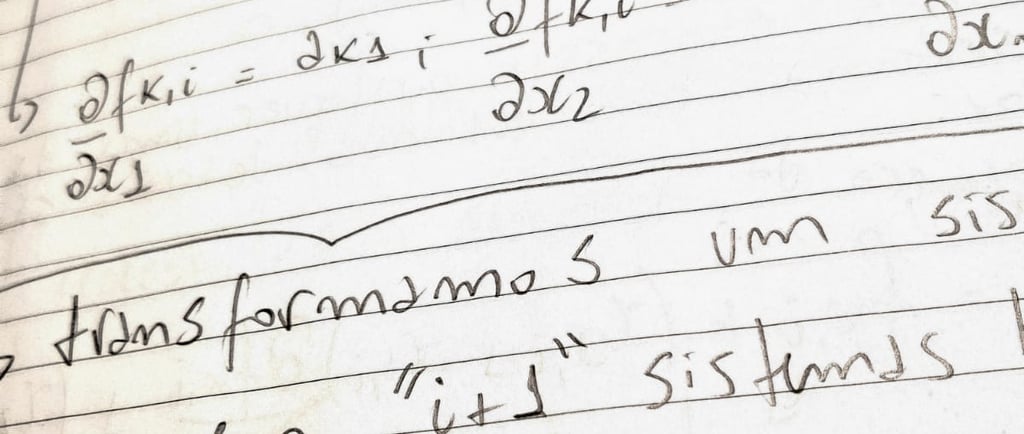 ↳ ∂fk,i = ak1 ; ∂fk,i
∂x1 ∂x2 ∂x
transformamos um sis
"i+1" sistemas